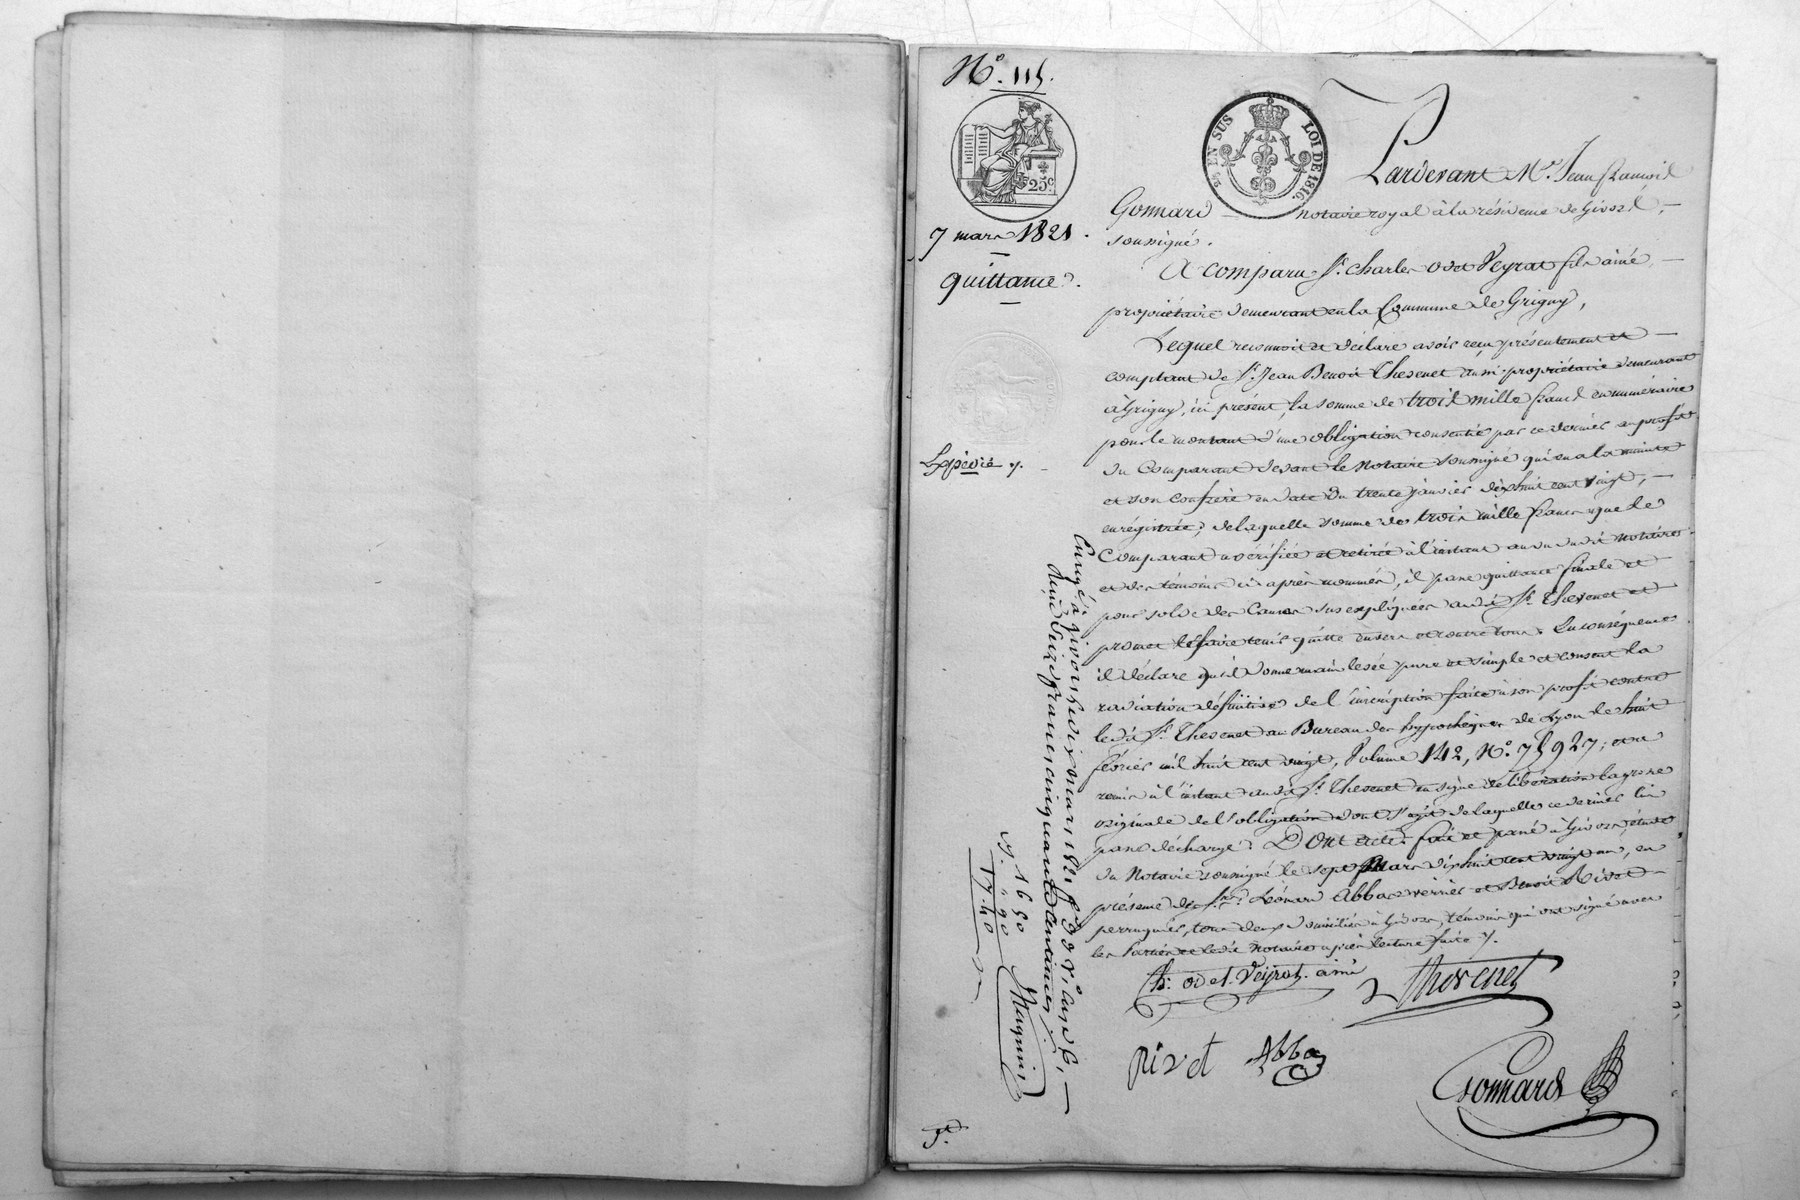 N.º 115.
25c
EN SUS LOI DE 1816.
7 mars 1821.
quittance.
Expédié /.
Pardevant Mᵉ. Jean françois
Gonnard notaire royal à la résidence de Givors, —
soussigné.
A comparu Sr. charles Odet Veyrat fils ainé, —
propriétaire demeurant en la Commune de Grigny,
Lequel reconnoit et déclare avoir reçu présentement et —
comptant de Sr. Jean Benoit Thevenet aussi propriétaire demeurant
à Grigny, ici présent, la somme de trois mille francs en numéraire
pour le montant d'une obligation consentie par ce dernier au profit
du Comparant devant le Notaire soussigné qui en a la minute
et son confrère en date du trente janvier dix huit cent vingt, —
enrégistrée; de laquelle somme de trois mille francs que le
Comparant a vérifiée et retirée à l'instant au vu dudit notaire
et des témoins ci après nommés, il passe quittance finale et
pour solde des Causes sus expliquées audit Sr. Thevenet et
promet le faire tenir quitte envers et contre tous. En conséquence
il déclare qu'il donne main levée pure et simple et consent la
radiation définitive de l'inscription faite à son profit contre
ledit Sr. Thevenet au Bureau des hypothèques de Lyon le huit
février mil huit cent vingt, Volume 142, N.º 75927; et a
remis à l'instant audit Sr. Thevenet en signe de libération la grosse
originale de l'obligation dont s'agit de laquelle ce dernier lui
passe décharge. Dont acte: fait et passé à Givors, étude
du Notaire soussigné le sept Mars dix huit cent vingt un, en
présence de Srs. Léonard Abba verrier et Benoit Rivet —
perruquier, tous deux domiciliés à Givors, témoins qui ont signé avec
les parties et ledit Notaire après lecture faite /.
Ch: odet Veyrat. ainé
Thevenet
Rivet
Abba
Gonnard
Enregé à givors le dix mars 1821 fº
quinze francs cinquante centimes
15. 50
1. 90
17. 40